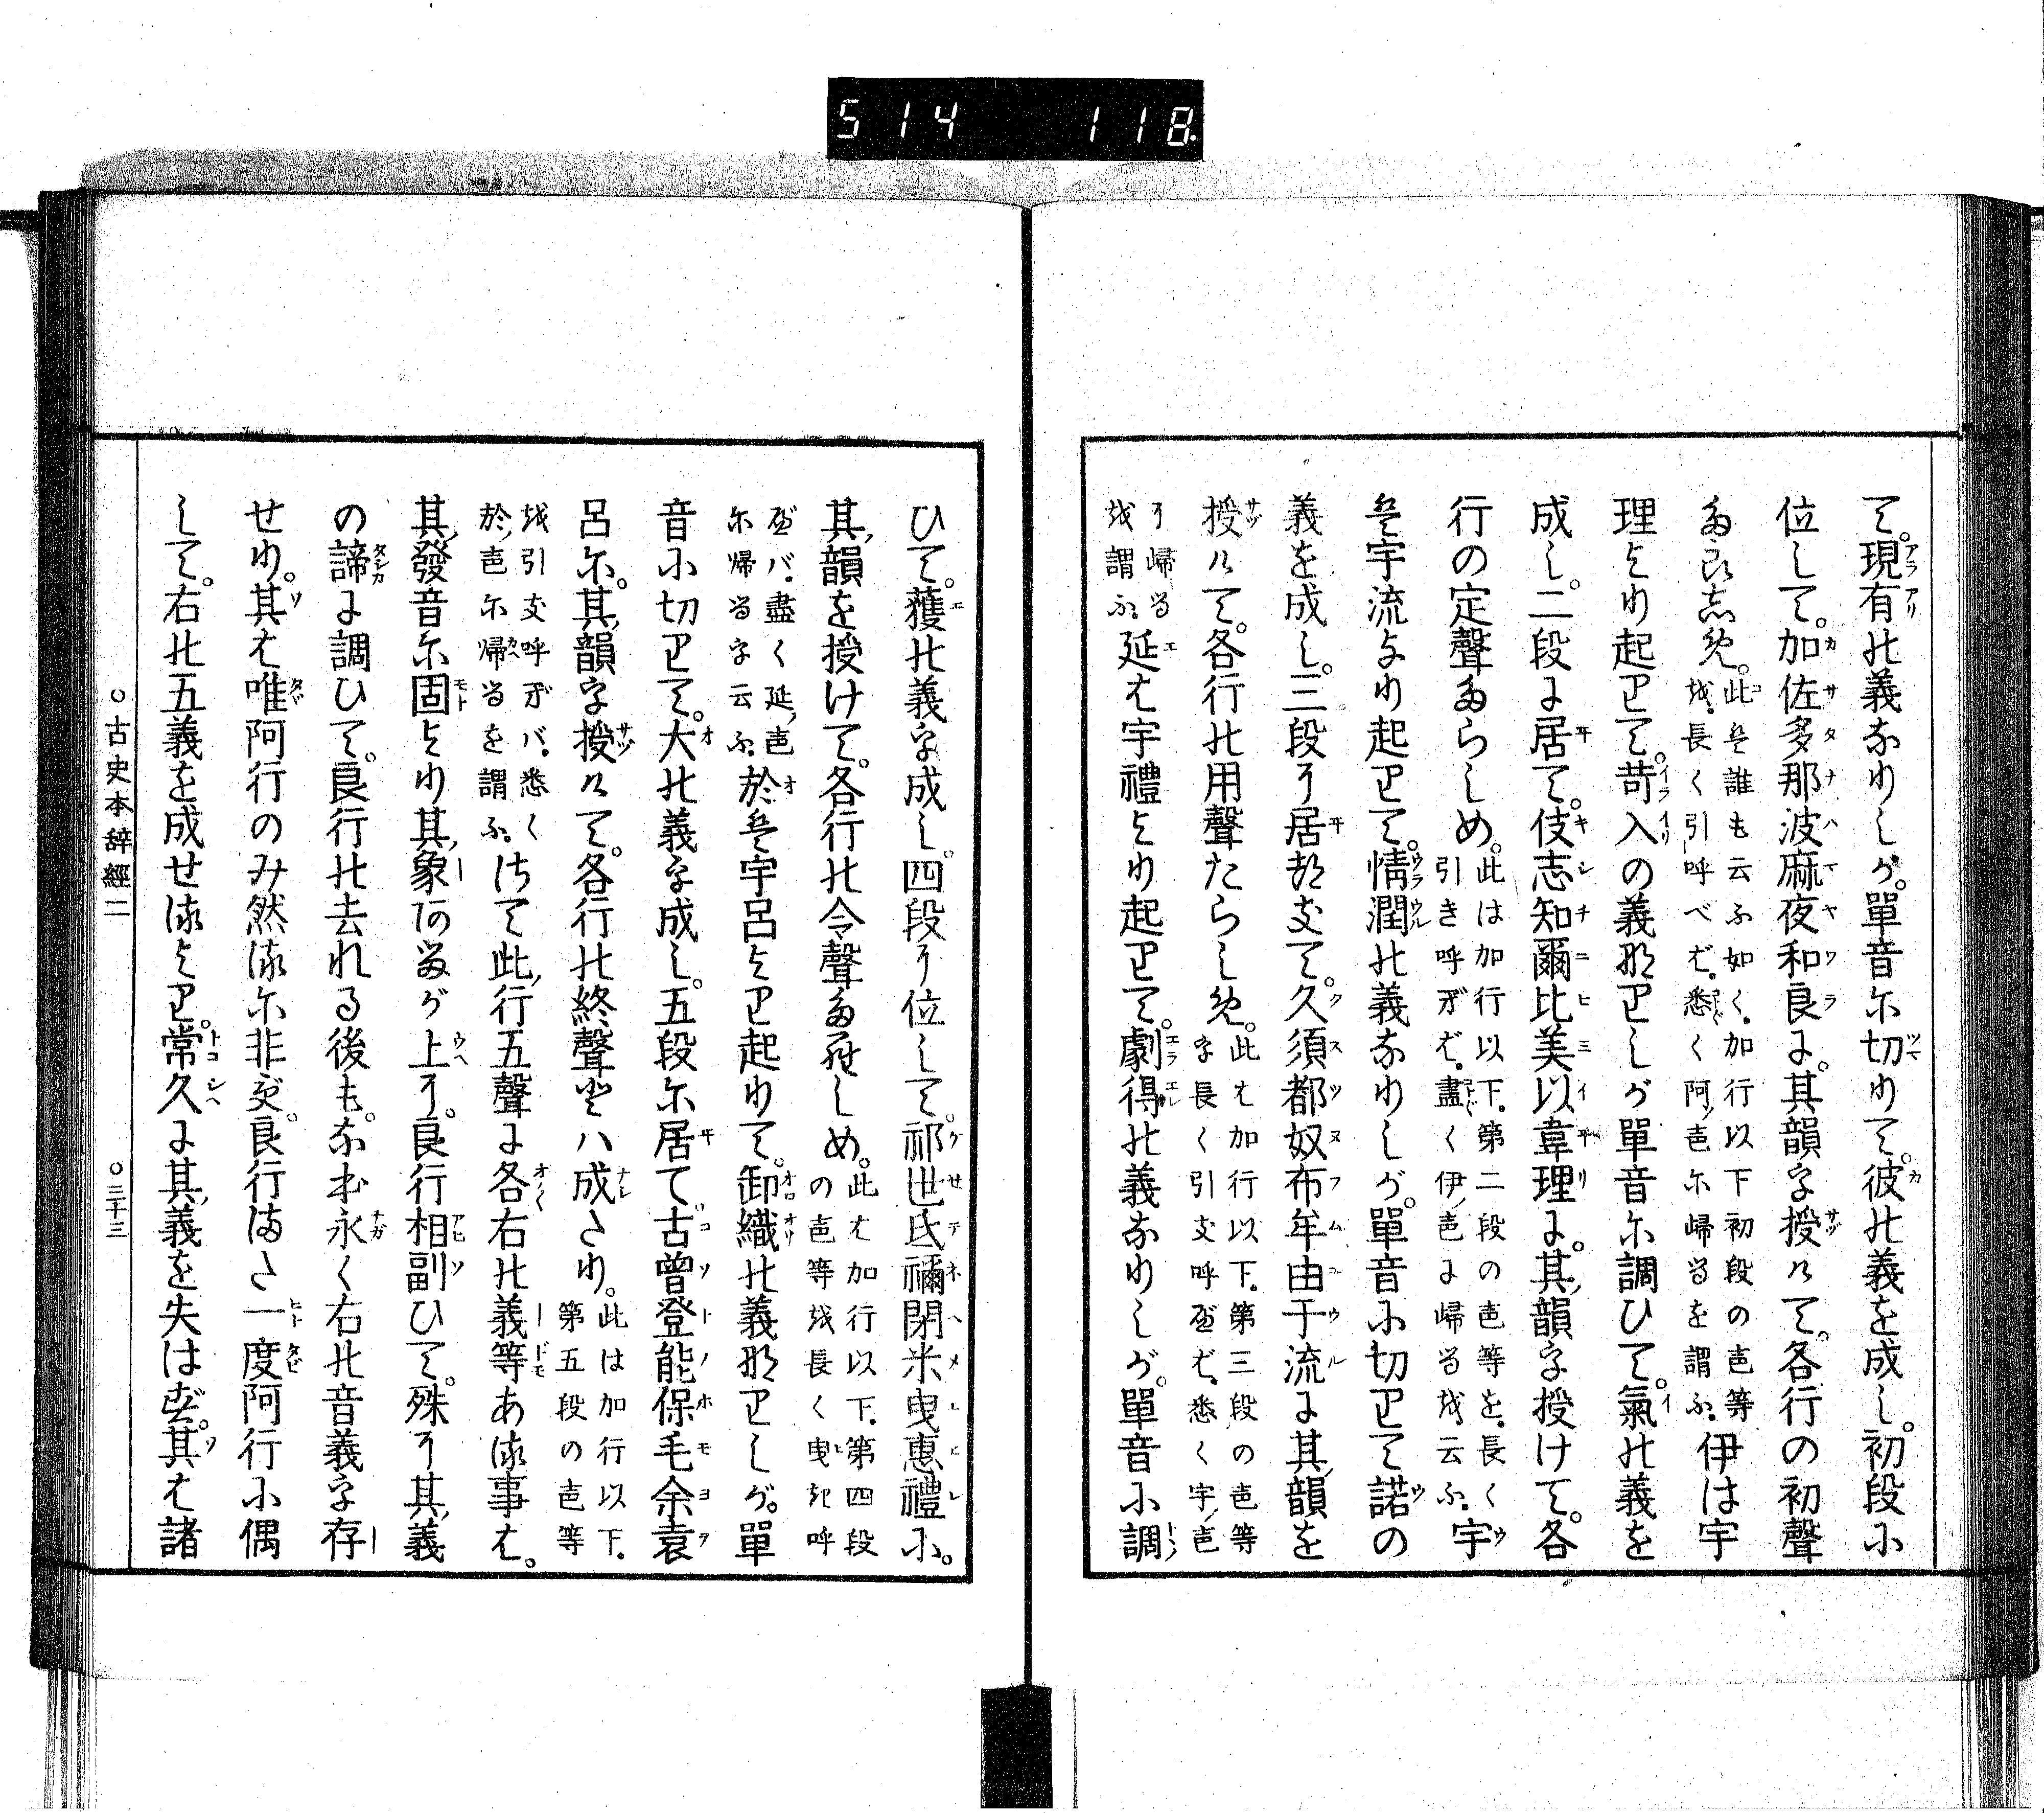 5 14 118.
て。現有の義なりしが。單音に切りて。彼の義を成し。初段に
位して。加佐多那波麻夜和良に。其韻を授けて。各行の初聲
たらしめ。此は誰も云ふ如く。加行以下初段の音等
を。長く引呼べば。悉く阿音に歸るを謂ふ。伊は宇
理より起りて。苛入の義なりしが單音に調ひて。氣の義を
成し。二段に居て。伎志知爾比美以韋理に。其韻を授けて。各
行の定聲たらしめ。此は加行以下。第二段の音等を。長く
引き呼ずば。盡く伊音に歸るを云ふ。宇
は宇流より起りて。情潤の義なりしが。單音に切りて諾の
義を成し。三段に居坐て。久須都奴布牟由于流に其韻を
授けて。各行の用聲たらしめ。此は加行以下。第三段の音等
を長く引き呼ずば。悉く宇音
に歸る
を謂ふ。延は宇禮より起りて。劇得の義なりしが。單音に調
ひて。獲の義を成し。四段に位して。祁世氐禰閇米曳惠禮に。
其韻を授けて。各行の令聲たらしめ。此は加行以下。第四段
の音等を長く曳き呼
ずば。盡く延音
に歸るを云ふ。於は宇呂より起りて。御織の義なりしが。單
音に切りて。大の義を成し。五段に居て。古曾登能保毛余袁
呂に。其韻を授けて。各行の終聲とは成たり。此は加行以下。
第五段の音等
を引き呼ずば。悉く
於音に歸るを謂ふ。はて此行五聲に各右の義等ある事は。
其發音に固より其象あるが上に。良行相副ひて。殊に其義
の諦に調ひて。良行の去れる後も。なほ永く右の音義を存
せり。其は唯阿行のみ然るに非ず。良行また一度阿行に偶
して。右の五義を成せるより。常久に其義を失はず。其は諸
○古史本辭經二 ○三十三